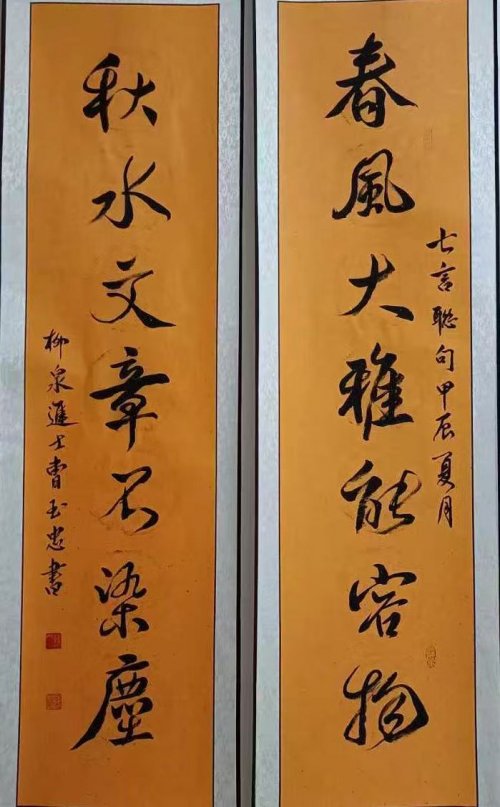 春風大雅能容物
七言聯句甲辰夏月
秋水文章不染塵
柳泉進士曹玉忠書